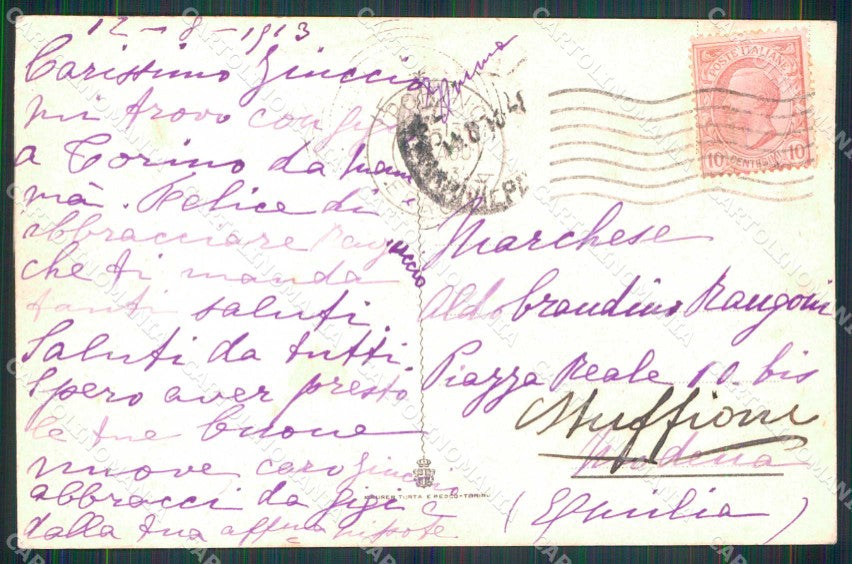 12-8-1913
Carissimo Giuccio
mi trovo con
a Torino da mam
mà. Felice di
abbracciare
che ti manda
tanti saluti.
Saluti da tutti.
Spero aver presto
le tue buone
nuove caro
abbracci da Gigi e
dalla tua aff.ma nipote
POSTE ITALIANE
10 CENTESIMI 10
Marchese
Aldobrandino Rangoni
Piazza Reale 10 bis
Stuffione
Modena
(Emilia)
CARTOLINOMANIA